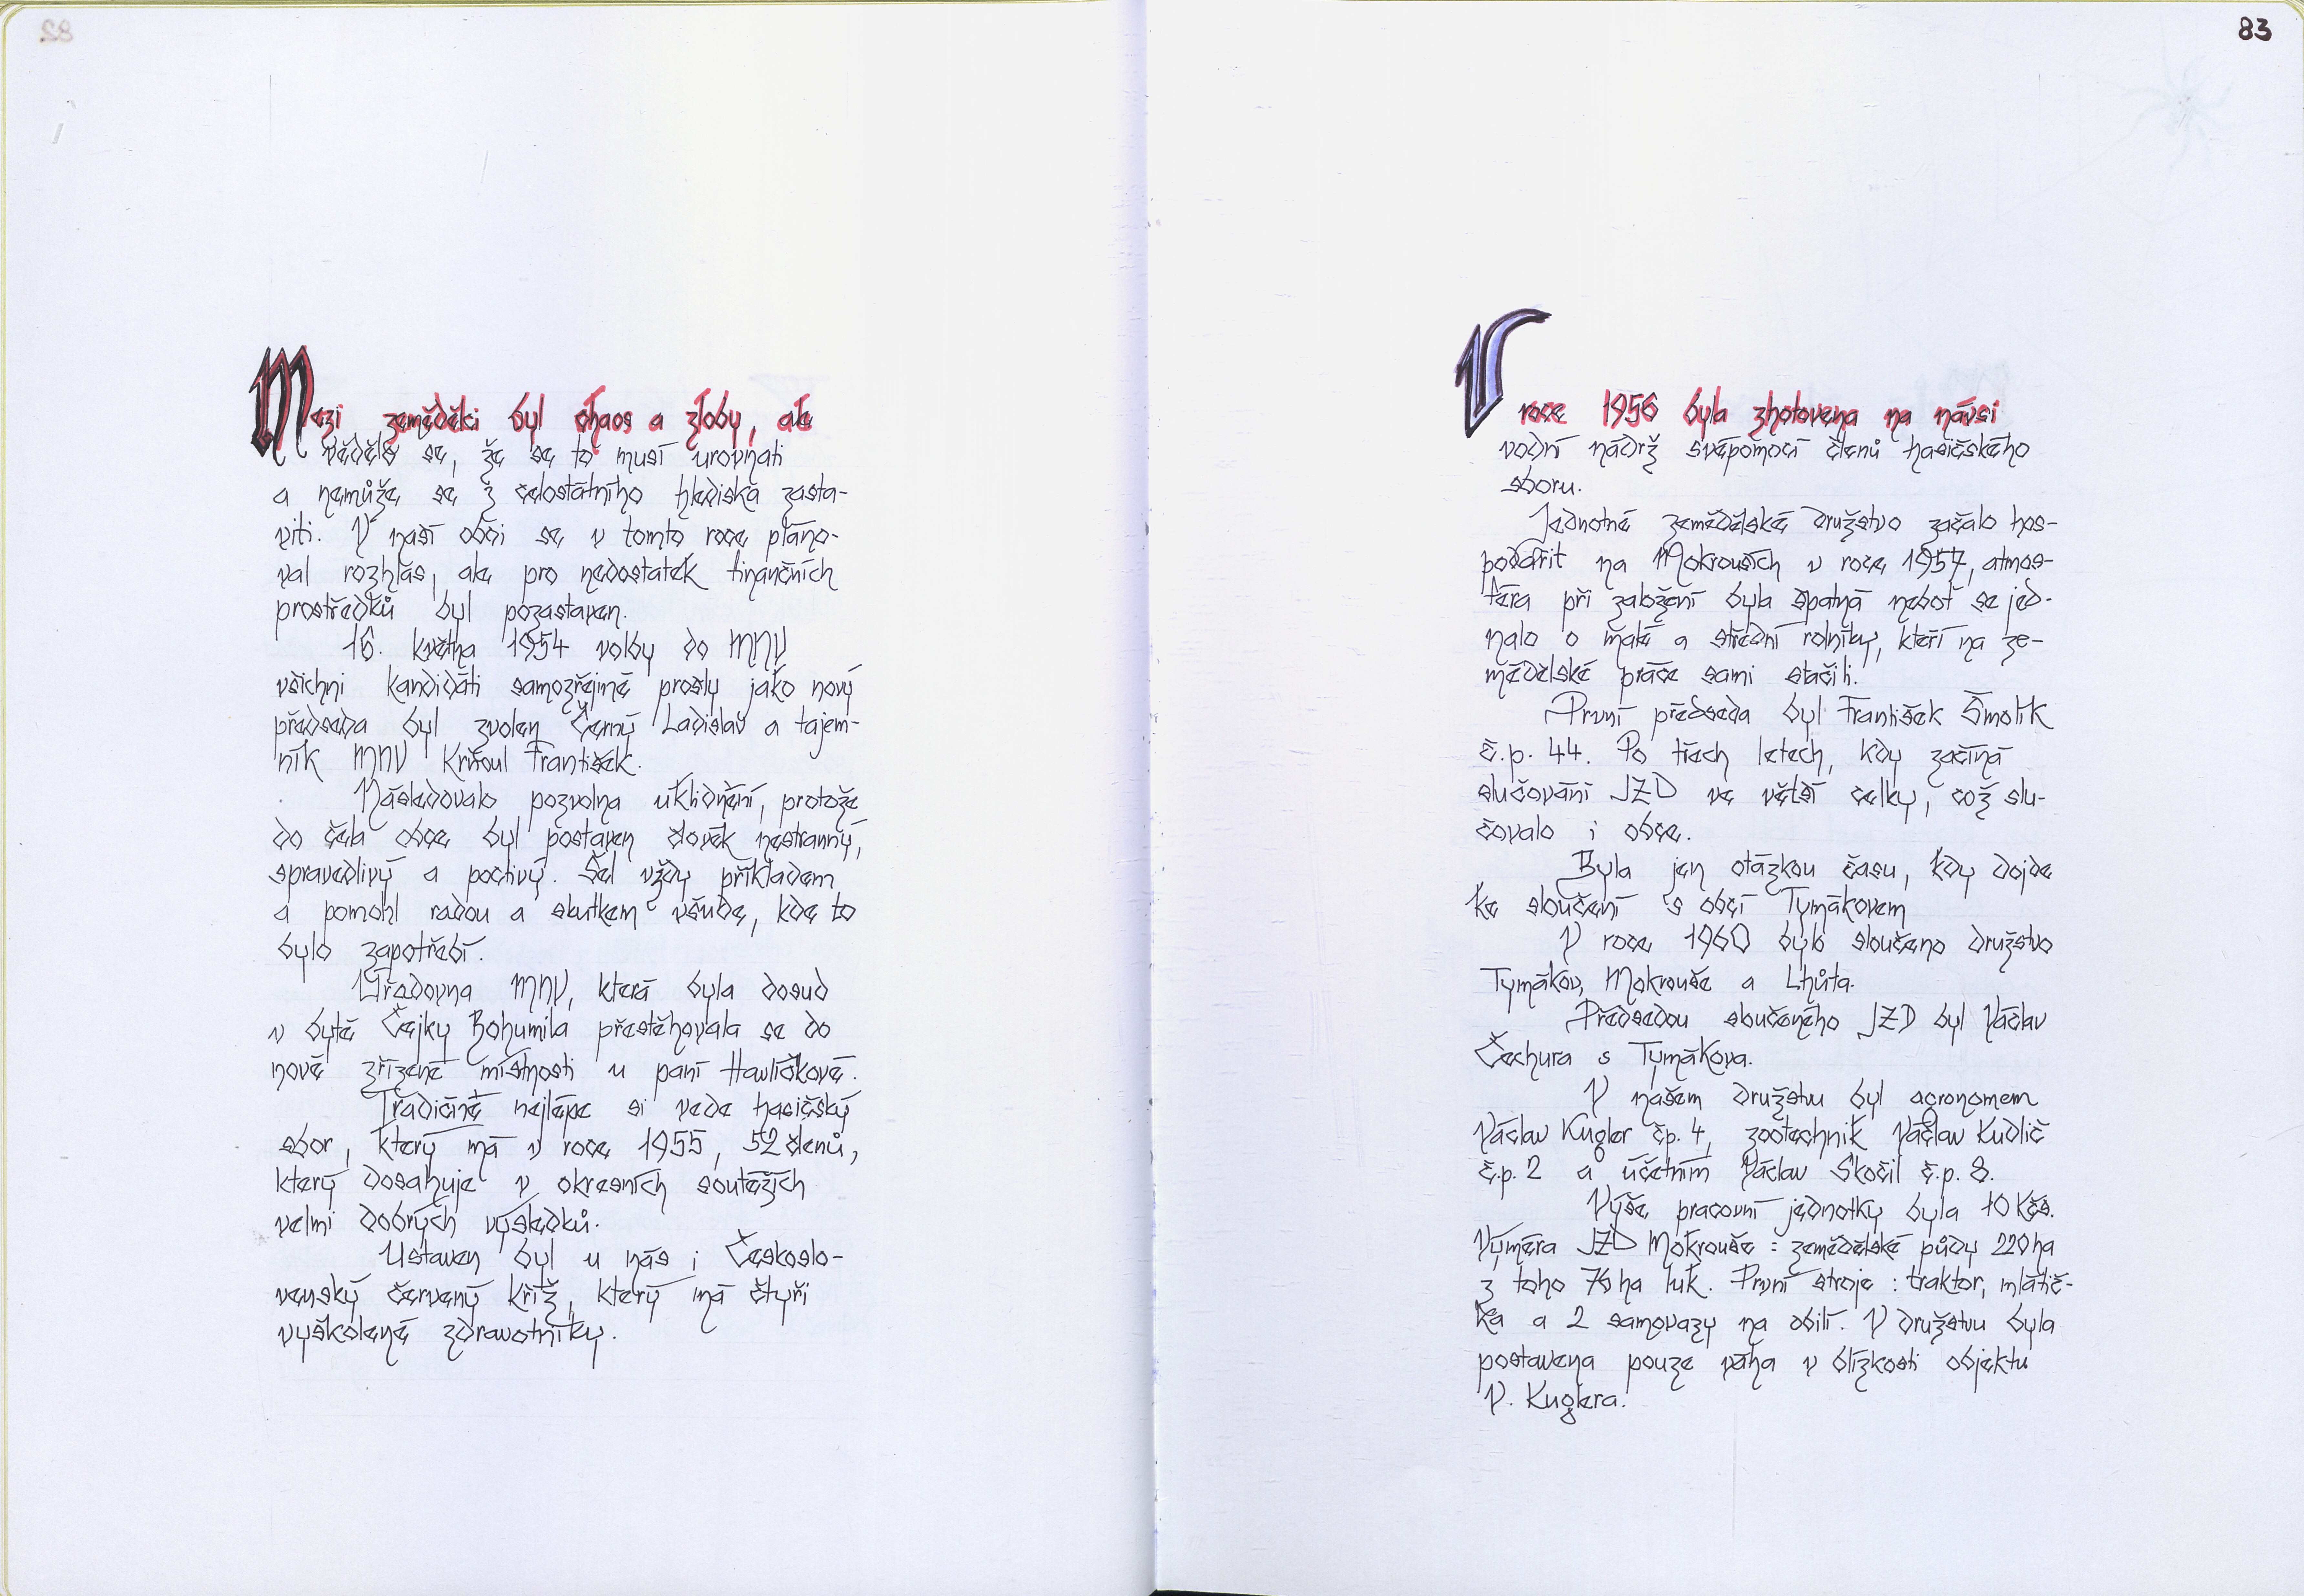 Mezi zemědělci byl chaos a zloby, ale
vědělo se, že se to musí urovnati
a nemůže se z celostátního hlediska zasta-
viti. V naší obci se v tomto roce pláno-
val rozhlas, ale pro nedostatek finančních
prostředků byl pozastaven.
16. května 1954 volby do MNV
všichni kandidáti samozřejmě prošly jako nový
předseda byl zvolen Černý Ladislav a tajem-
ník MNV Křňoul František.
Následovalo pozvolna uklidnění, protože
do čela obce byl postaven člověk nestranný,
spravedlivý a poctivý. Šel vždy příkladem
a pomohl radou a skutkem všude, kde to
bylo zapotřebí.
Úřadovna MNV, která byla dosud
v bytě Čejky Bohumila přestěhovala se do
nově zřízené místnosti u paní Havlíčkové.
Tradičně nejlépe si vede hasičský
sbor, který má v roce 1955, 52 členů,
který dosahuje v okresních soutěžích
velmi dobrých výsledků.
Ustaven byl u nás i Českoslo-
venský červený kříž, který má čtyři
vyškolené zdravotníky.
83
V roce 1956 byla zhotovena na návsi
vodní nádrž svépomocí členů hasičského
sboru.
Jednotné zemědělské družstvo začalo hos-
podařit na Mokrouších v roce 1957, atmos-
féra při založení byla špatná neboť se jed-
nalo o malé a střední rolníky, kteří na ze-
mědělské práce sami stačili.
První předseda byl František Šmolík
č.p. 44. Po třech letech, kdy začíná
slučování JZD ve větší celky, což slu-
čovalo i obce.
Byla jen otázkou času, kdy dojde
ke sloučení s obcí Tymákovem
V roce 1960 bylo sloučeno družstvo
Tymákov, Mokrouše a Lhůta.
Předsedou sloučeného JZD byl Václav
Čechura s Tymákova.
V našem družstvu byl agronomem
Václav Kugler čp. 4, zootechnik Václav Kudlič
č.p. 2 a účetním Václav Skočil č.p. 8.
Výše pracovní jednotky byla 10 Kčs.
Výměra JZD Mokrouše : zemědělské půdy 220 ha
z toho 76 ha luk. První stroje : traktor, mlátič-
ka a 2 samovazy na obilí. V družstvu byla
postavena pouze váha v blízkosti objektu
V. Kuglera.